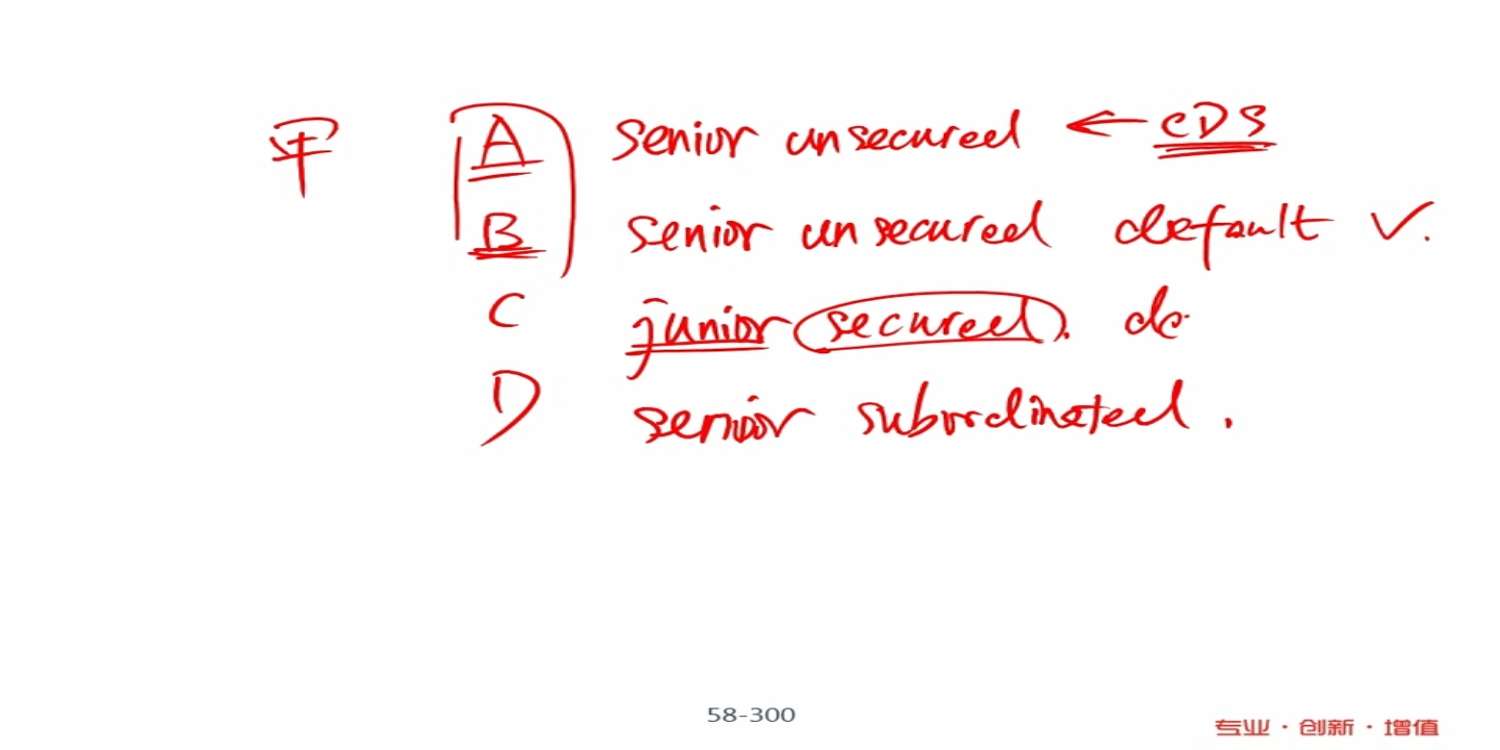 甲 A senior unsecured ← CDS
B senior unsecured default ✓.
C junior secured. de
D senior subordinated.
58-300
专业·创新·增值